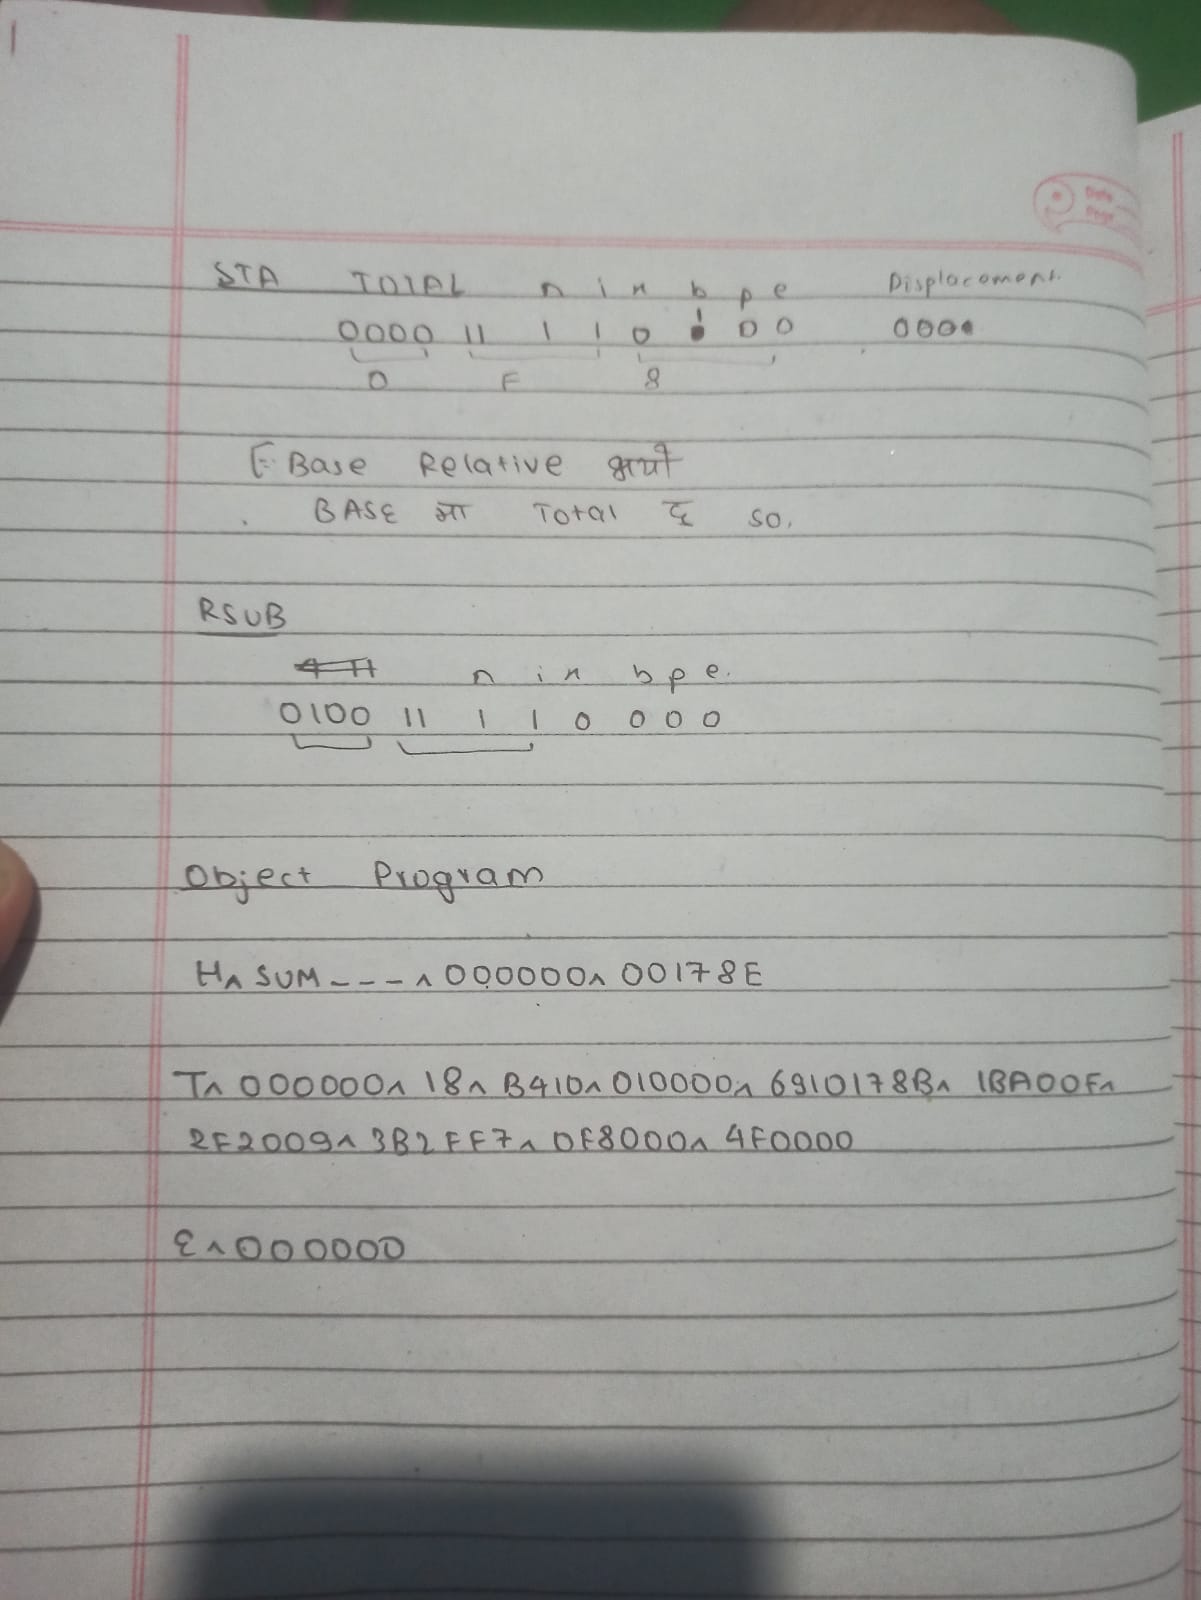 Date
Page
STA TOTAL n i x b p e Displacement.
0000 11 1 1 0 1 0 0 0000
0 F 8
[: Base Relative भयो
BASE मा Total छ so.
RSUB
n i x b p e.
0100 11 1 1 0 0 0 0
Object Program
H^ SUM---^000000^00178E
T^000000^18^B410^010000^6910178B^1BA00F^
2F2009^3B2FF7^0F8000^4F0000
E^000000